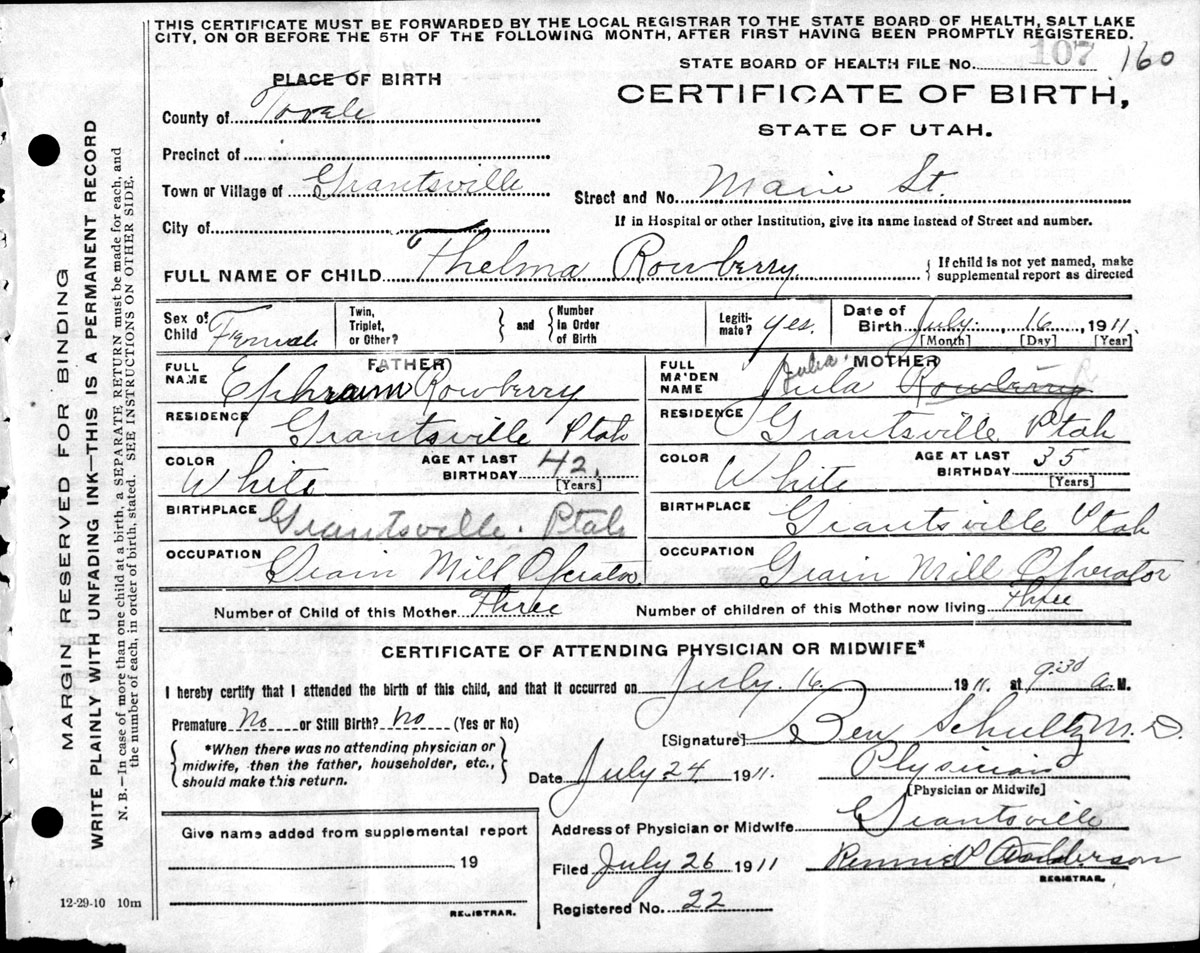 THIS CERTIFICATE MUST BE FORWARDED BY THE LOCAL REGISTRAR TO THE STATE BOARD OF HEALTH, SALT LAKE
CITY, ON OR BEFORE THE 5TH OF THE FOLLOWING MONTH, AFTER FIRST HAVING BEEN PROMPTLY REGISTERED.
STATE BOARD OF HEALTH FILE No. 107 160
PLACE OF BIRTH
CERTIFICATE OF BIRTH,
STATE OF UTAH.
County of Tooele
Precinct of
Town or Village of Grantsville
Street and No. Main St.
City of
If in Hospital or other Institution, give its name instead of Street and number.
FULL NAME OF CHILD Thelma Rowberry
If child is not yet named, make
supplemental report as directed
Sex of Child Female
Twin, Triplet, or Other?
and
Number in Order of Birth
Legiti-mate? yes.
Date of Birth July 16 1911.
[Month] [Day] [Year]
FATHER
FULL NAME Ephraim Rowberry
MOTHER
FULL MAIDEN NAME Julia Jula Rowberry
RESIDENCE Grantsville Utah
RESIDENCE Grantsville Utah
COLOR White AGE AT LAST BIRTHDAY 42.
[Years]
COLOR White AGE AT LAST BIRTHDAY 35
[Years]
BIRTHPLACE Grantsville. Utah
BIRTHPLACE Grantsville Utah
OCCUPATION Grain Mill Operator
OCCUPATION Grain Mill Operator
Number of Child of this Mother Three
Number of children of this Mother now living three
CERTIFICATE OF ATTENDING PHYSICIAN OR MIDWIFE*
I hereby certify that I attended the birth of this child, and that it occurred on July. 16 1911. at 9:30 a. M.
Premature No or Still Birth? No (Yes or No)
*When there was no attending physician or
midwife, then the father, householder, etc.,
should make this return.
[Signature] Ben Schultz M. D.
Date July 24 1911.
Physician
[Physician or Midwife]
Give name added from supplemental report
19
REGISTRAR.
Address of Physician or Midwife Grantsville
Filed July 26 1911
REGISTRAR.
Registered No. 22
12-29-10 10m
MARGIN RESERVED FOR BINDING
WRITE PLAINLY WITH UNFADING INK—THIS IS A PERMANENT RECORD
N. B.—In case of more than one child at a birth, a SEPARATE RETURN must be made for each, and
the number of each, in order of birth, stated. SEE INSTRUCTIONS ON OTHER SIDE.